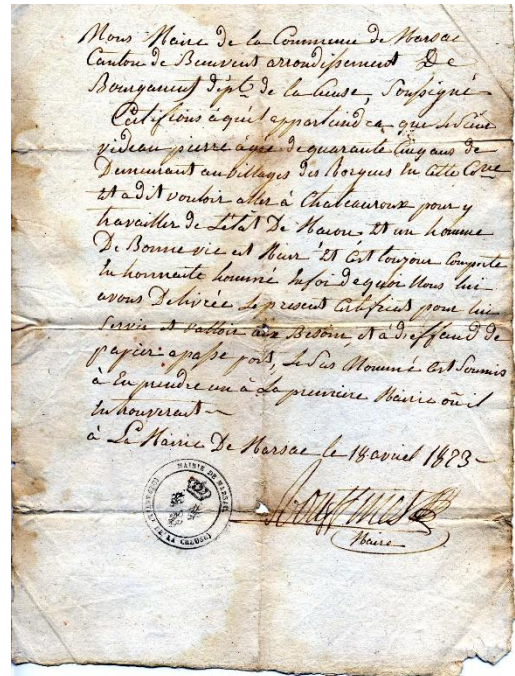 Nous Maire de la Commune de Marsac
Canton de Benevent arrondissement De
Bourganeuf dépt. de la Creuse, Soussigné
Certifions à qu'il appartiendra que le Sieur
videau pierre agée de quarante Cinq ans
Demeurant au villages des Borgeus en cette Cne
Et a dit vouloir aller à Chateauroux pour y
travailler de L'état De Maçon Et un homme
De Bonne vie et Mœur Et C'est toujour Comporté
En honnaite homme En foi de quoi Nous lui
avons Delivrée Le present Certificat pour lui
Servir et valloir aux Besoin et à deffaud de
papier a passe port, Le Sus Nommé Est Soumis
à En prendre un à La premiere Mairie où il
En trouverat
à La Mairie De Marsac le 18 avril 1823
MAIRIE DE MARSAC
DE LA CREUSE
Maire